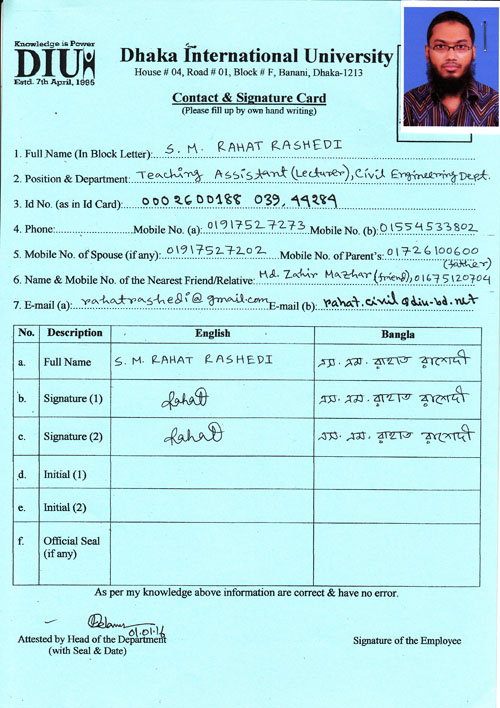 Knowledge is Power
DIU
Estd. 7th April, 1995
Dhaka International University
House # 04, Road # 01, Block # F, Banani, Dhaka-1213
Contact & Signature Card
(Please fill up by own hand writing)
1. Full Name (In Block Letter): S. M. RAHAT RASHEDI
2. Position & Department: Teaching Assistant (Lecturer), Civil Engineering Dept.
3. Id No. (as in Id Card): 0002600188 039, 44284
4. Phone: Mobile No. (a): 01917527273 Mobile No. (b): 01554533802
5. Mobile No. of Spouse (if any): 01917527202 Mobile No. of Parent's: 01726100600
(father)
6. Name & Mobile No. of the Nearest Friend/Relative: Md. Zahir Mazhar (friend), 01675120704
7. E-mail (a): rahatrashedi@gmail.com E-mail (b): rahat.civil@diu-bd.net
No. Description English Bangla
a. Full Name S. M. RAHAT RASHEDI এস. এম. রাহাত রাশেদী
b. Signature (1) Rahat এস. এম. রাহাত রাশেদী
c. Signature (2) Rahat এস. এম. রাহাত রাশেদী
d. Initial (1)
e. Initial (2)
f. Official Seal
(if any)
As per my knowledge above information are correct & have no error.
01.01.16
Attested by Head of the Department Signature of the Employee
(with Seal & Date)